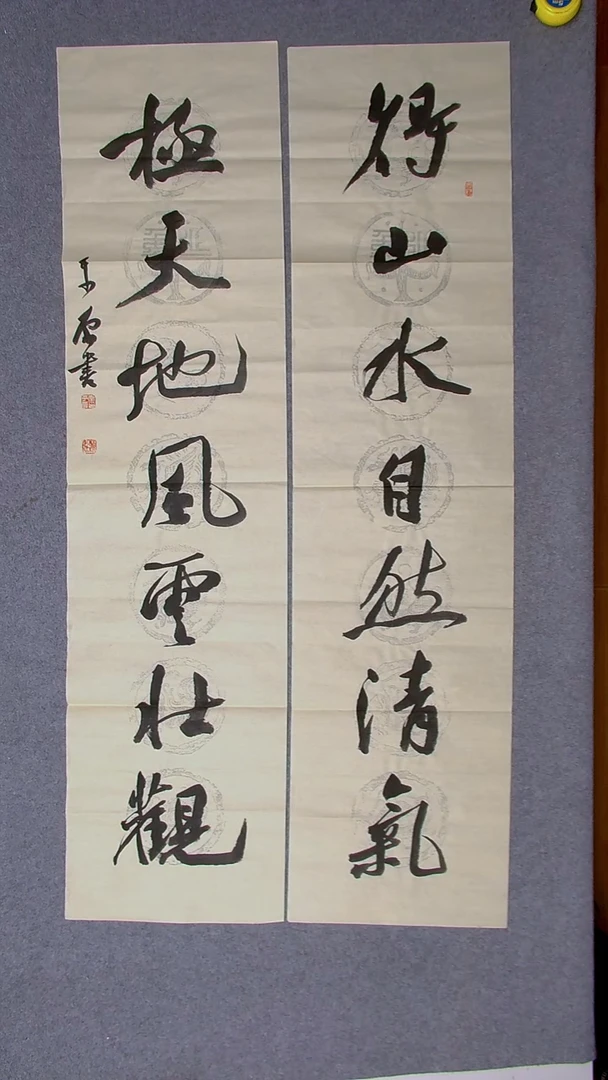 得山水自然清氣
極天地風雲壯觀
書